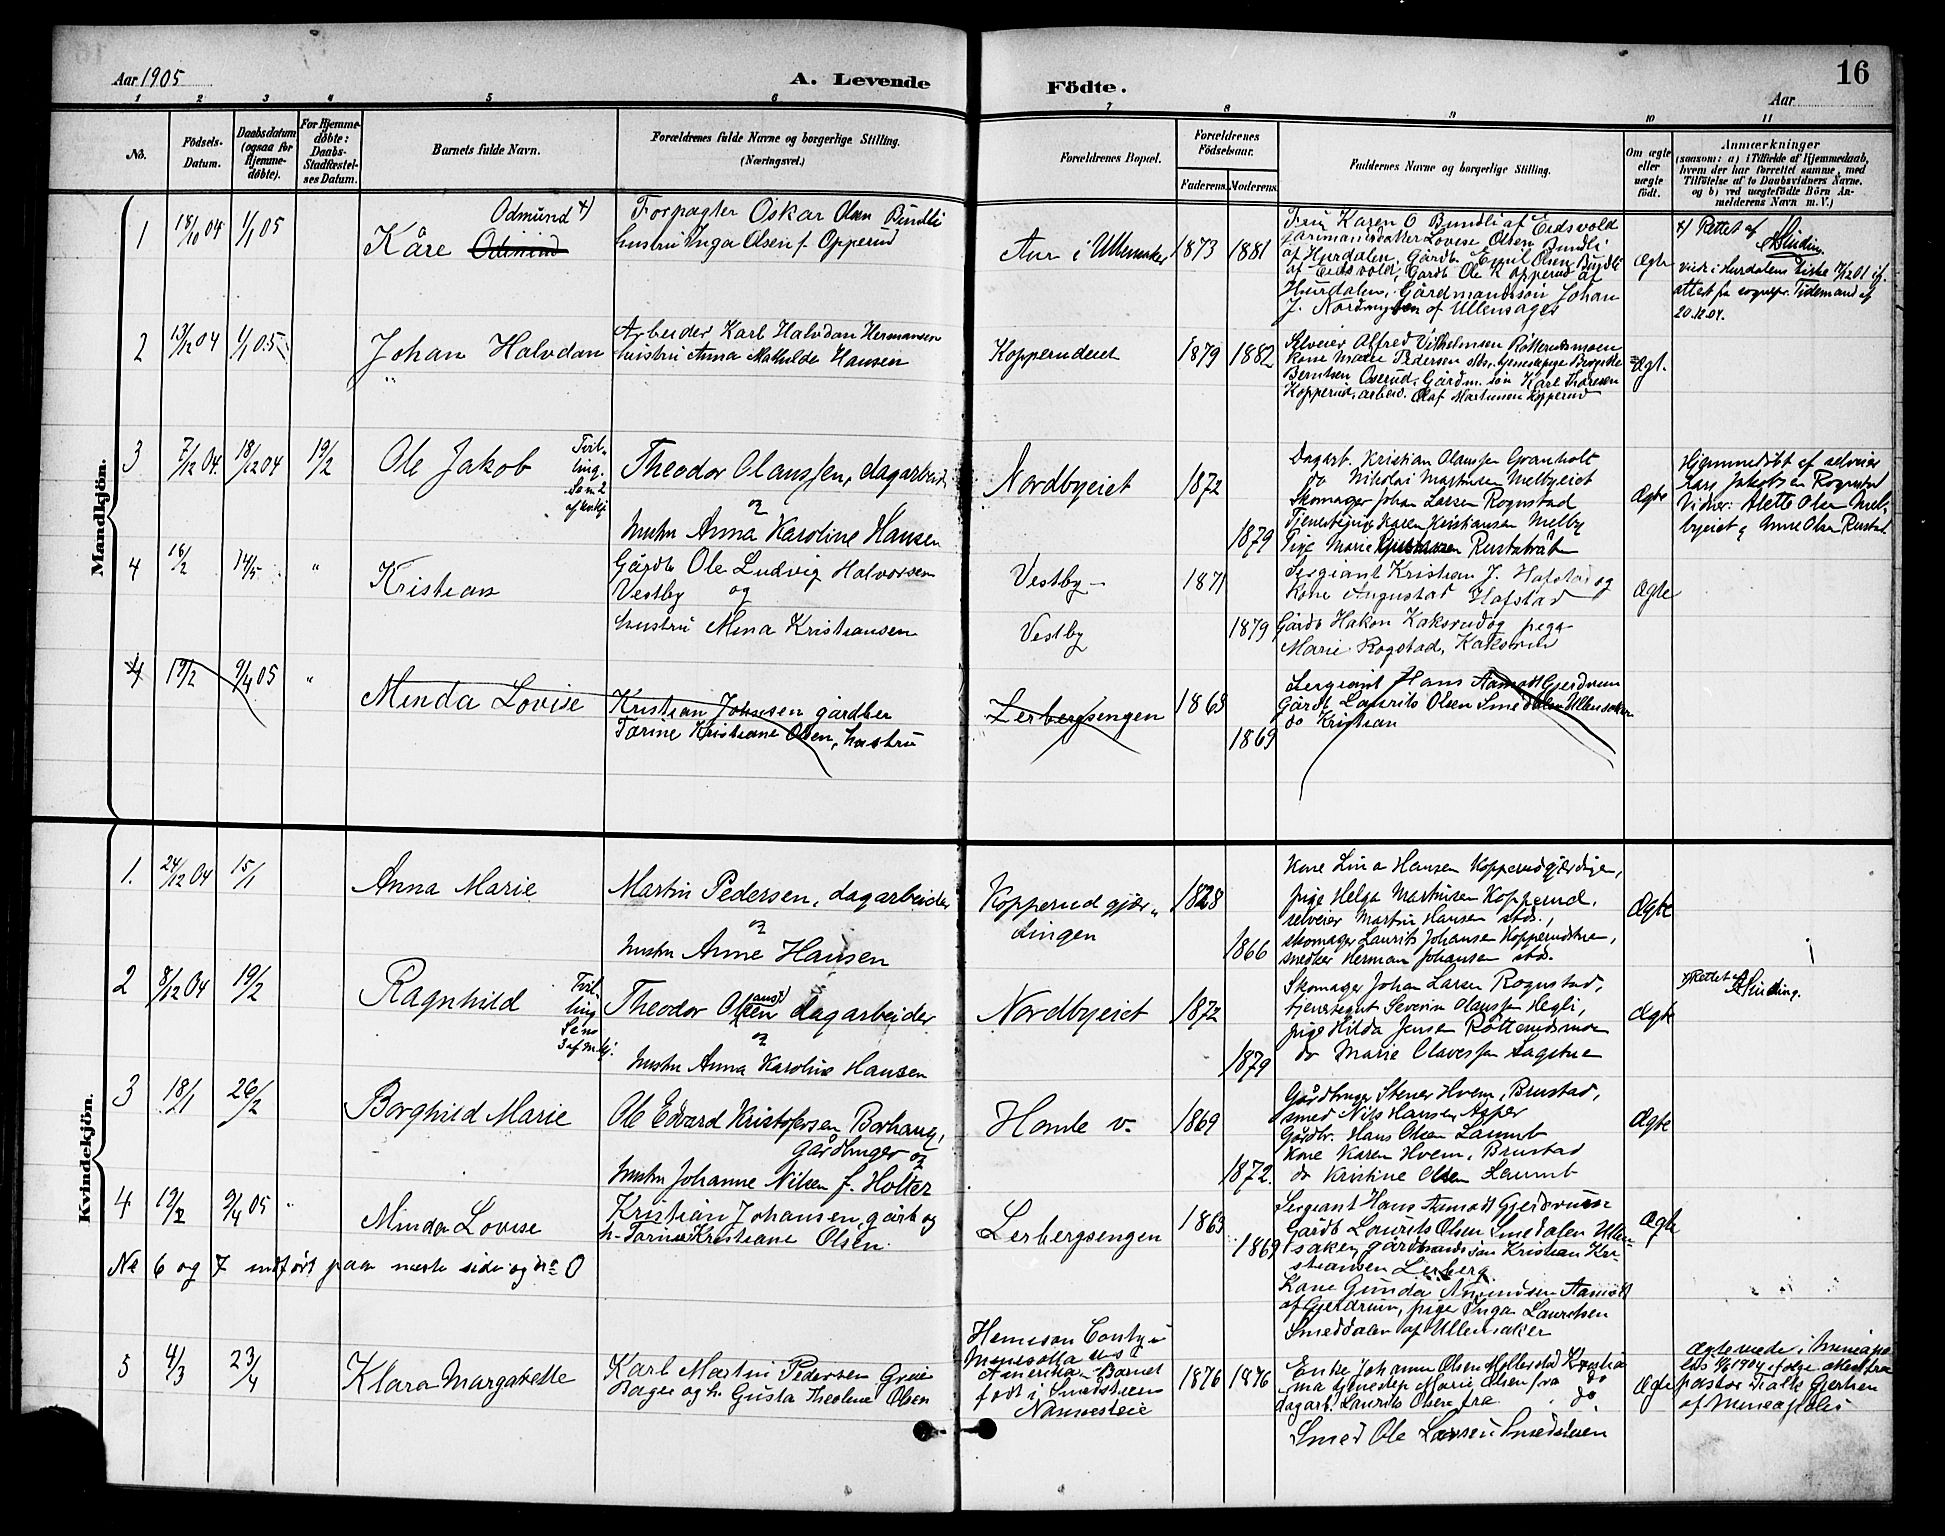 Aar 1905
A. Levende
Födte.
16
Aar
1 2 3 4 5 6 7 8 9 10 11
Nò.
Födsels-
Datum.
Daabsdatum
(ogsaa for
Hjemme-
døbte).
For Hjemme-
døbte:
Daabs-
Stadfæstel-
ses Datum.
Barnets fulde Navn.
Forældrenes fulde Navne og borgerlige Stilling.
(Næringsvei.)
Forældrenes Bopæl.
Forældrenes
Födselsaar.
Faderens. Moderens.
Faddernes Navne og borgerlige Stilling.
Om ægte
eller
uægte
født.
Anmærkninger
(saasom: a) i Tilfælde af Hjemmedaab,
hvem der har forrettet samme, med
Tilföielse af to Daabsvidners Navne.
og b) ved uegtefödte Börn An-
melderens Navn m. V.)
Mandkjön.
1 18/10 04 1/1 05
Odmund x)
Kåre Odmund
Forpagter Oskar Olsen Bundli
hustru Inga Olsen f. Opperud
Aur i Ullensaker 1873 1881
Fru Karen O Bundli af Eidsvold
Gårmandsdatter Lovise Olsen Bundli
af Hurdalen, Gårdb. Emil Olsen Bundli
af Eidsvold, Gårdb Ole K Opperud af
Hurdalen, Gårdmandssön Johan
J. Nordmyren af Ullensager
Ægte
x) Rettet af
Hinding
viede i Hurdalens kirke 01 if.
attest fra sognepr. Tidemand af
20.12.04.
2 13/12 04 1/1 05
Johan Halvdan
Arbeider Karl Halvdan Hermansen
hustru Anna Mathilde Hansen
Kopperudeiet 1879 1882
Selveier Alfred Vilhelmsen Rotterudsmoen
Kone Marie Pedersen sts., tjenestepige Bergitte
Berntsen Oserud, Gårdm. sön Karl Thoresen
Kopperud, arbeid. Olaf Martinsen Kopperud
Ægt.
3 7/12 04. 18/12 04 19/2
Ole Jakob
Tvil-
ling.
Se no 2
af kvkj
Theodor Olaussen, dagarbeid.
og
hustru Anna Karoline Hansen
Nordbyeiet 1872
1879
Dagarb. Kristian Olaussen Granholt
do Nikolai Martinsen Melbyeiet
Skomager Johan Larsen Rognstad
Tjenestepige Karen Kristiansen Melby
Pige Marie Gustavsen Rustabråt
Ægte
Hjemmedöbt af selveier
Lars Jakobsen Rognstad
Vidner: Alette Olsen Mel-
byeiet og Anne Olsen Rustad.
4 16/2 14/5 "
Kristian
Gårdb Ole Ludvig Halvorsen
Vestby og
hustru Mina Kristiansen
Vestby 1871
Vestby 1879
Sergiant Kristian J. Hofstad og
Kone Augustad Hofstad
Gårdb Hakon Kaksrud og pega
Marie Rogstad, Kaksrud
Ægte
4 19/2 9/4 05 "
Minda Lovise
Kristian Johansen gårdber
Torine Kristiane Olsen, hustru
Lerbergsengen 1863
1869
Sergiant Hans Aamodt Gjerdrum
Gårdb Laurits Olsen Smedalen Ullensaker
do Kristian
Kvindekjön.
1. 24/12 04 15/1
Anna Marie
Martin Pedersen, dagarbeider
og
hustru Anne Hansen
Kopperud gjær-
dingen
1828
1866
Kone Lina Hansen Kopperudgjærdingen,
pige Helga Martinsen Kopperud,
selveier Martin Hansen stds.,
skomager Laurits Johansen Kopperudstuen,
snedker Herman Johansen stds.
Ægte
2 8/12 04 19/2
Ragnhild
Tvil-
ling
Se no
3 af mkj.
Theodor Olsen dagarbeider
og
hustru Anna Karoline Hansen
Nordbyeiet 1872
1879
Skomager Johan Larsen Rognstad,
tjenestegut Severin Olaussen Hegli,
pige Hilda Jensen Rotterudsmoen
do Marie Olavessen Aagstue
Ægte
x) Rettet af
Hinding.
3 18/1 26/2
Borghild Marie
Ole Edvard Kristofersen Borhaug,
Gårdbruger og
hustru Johanne Nilsen f. Holter
Homle v. 1869
1872.
Gårdbruger Stener Hvem, Brustad,
smed Nils Hansen Asper
Gårdbr. Hans Olsen Laumb
Kone Karen Hvem, Brustad
do Kristine Olsen Laumb
Ægte
4 19/2 9/4 05 "
Minda Lovise
Kristian Johansen, gårb og
h. Torine Kristiane Olsen.
Lerbergsengen 1863
1869
Sergeant Hans Aamodt Gjerdrum
Gårdb Laurits Olsen Smedalen Ullen-
saker, gårdmands sön Kristian Kri-
stiansen Lerberg
Kone Gunda Amundsen Aamodt
af Gjerdrum, pige Inga Lauretsen
Smeddalen af Ullensaker
Ægte
No 6 og 7 indfört paa neste side og no 0
5 4/3 23/4
Klara Margarette
Karl Martin Pedersen Greie
Bager og h. Gusta Theoline Olsen
Henieson Conty i
Minesotta US
Amerika. Barnet
födt i Smedsteen
Nannesteie
1876 1876
Enke Johanne Olsen Mollerstad Kristia
nia tjenestep. Marie Olsen fra do
dagarb. Laurits Olsen fra do
Smed Ole Larsen Smedsteen
Ægte
Ægteviede i Mineapo
lis 1904 ifölge attest fra
pastor Falk Gjertsen
af Mineapolis